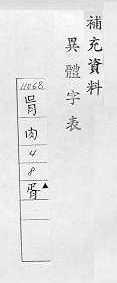 補充資料
異體字表
11068
肉
4
8
胥